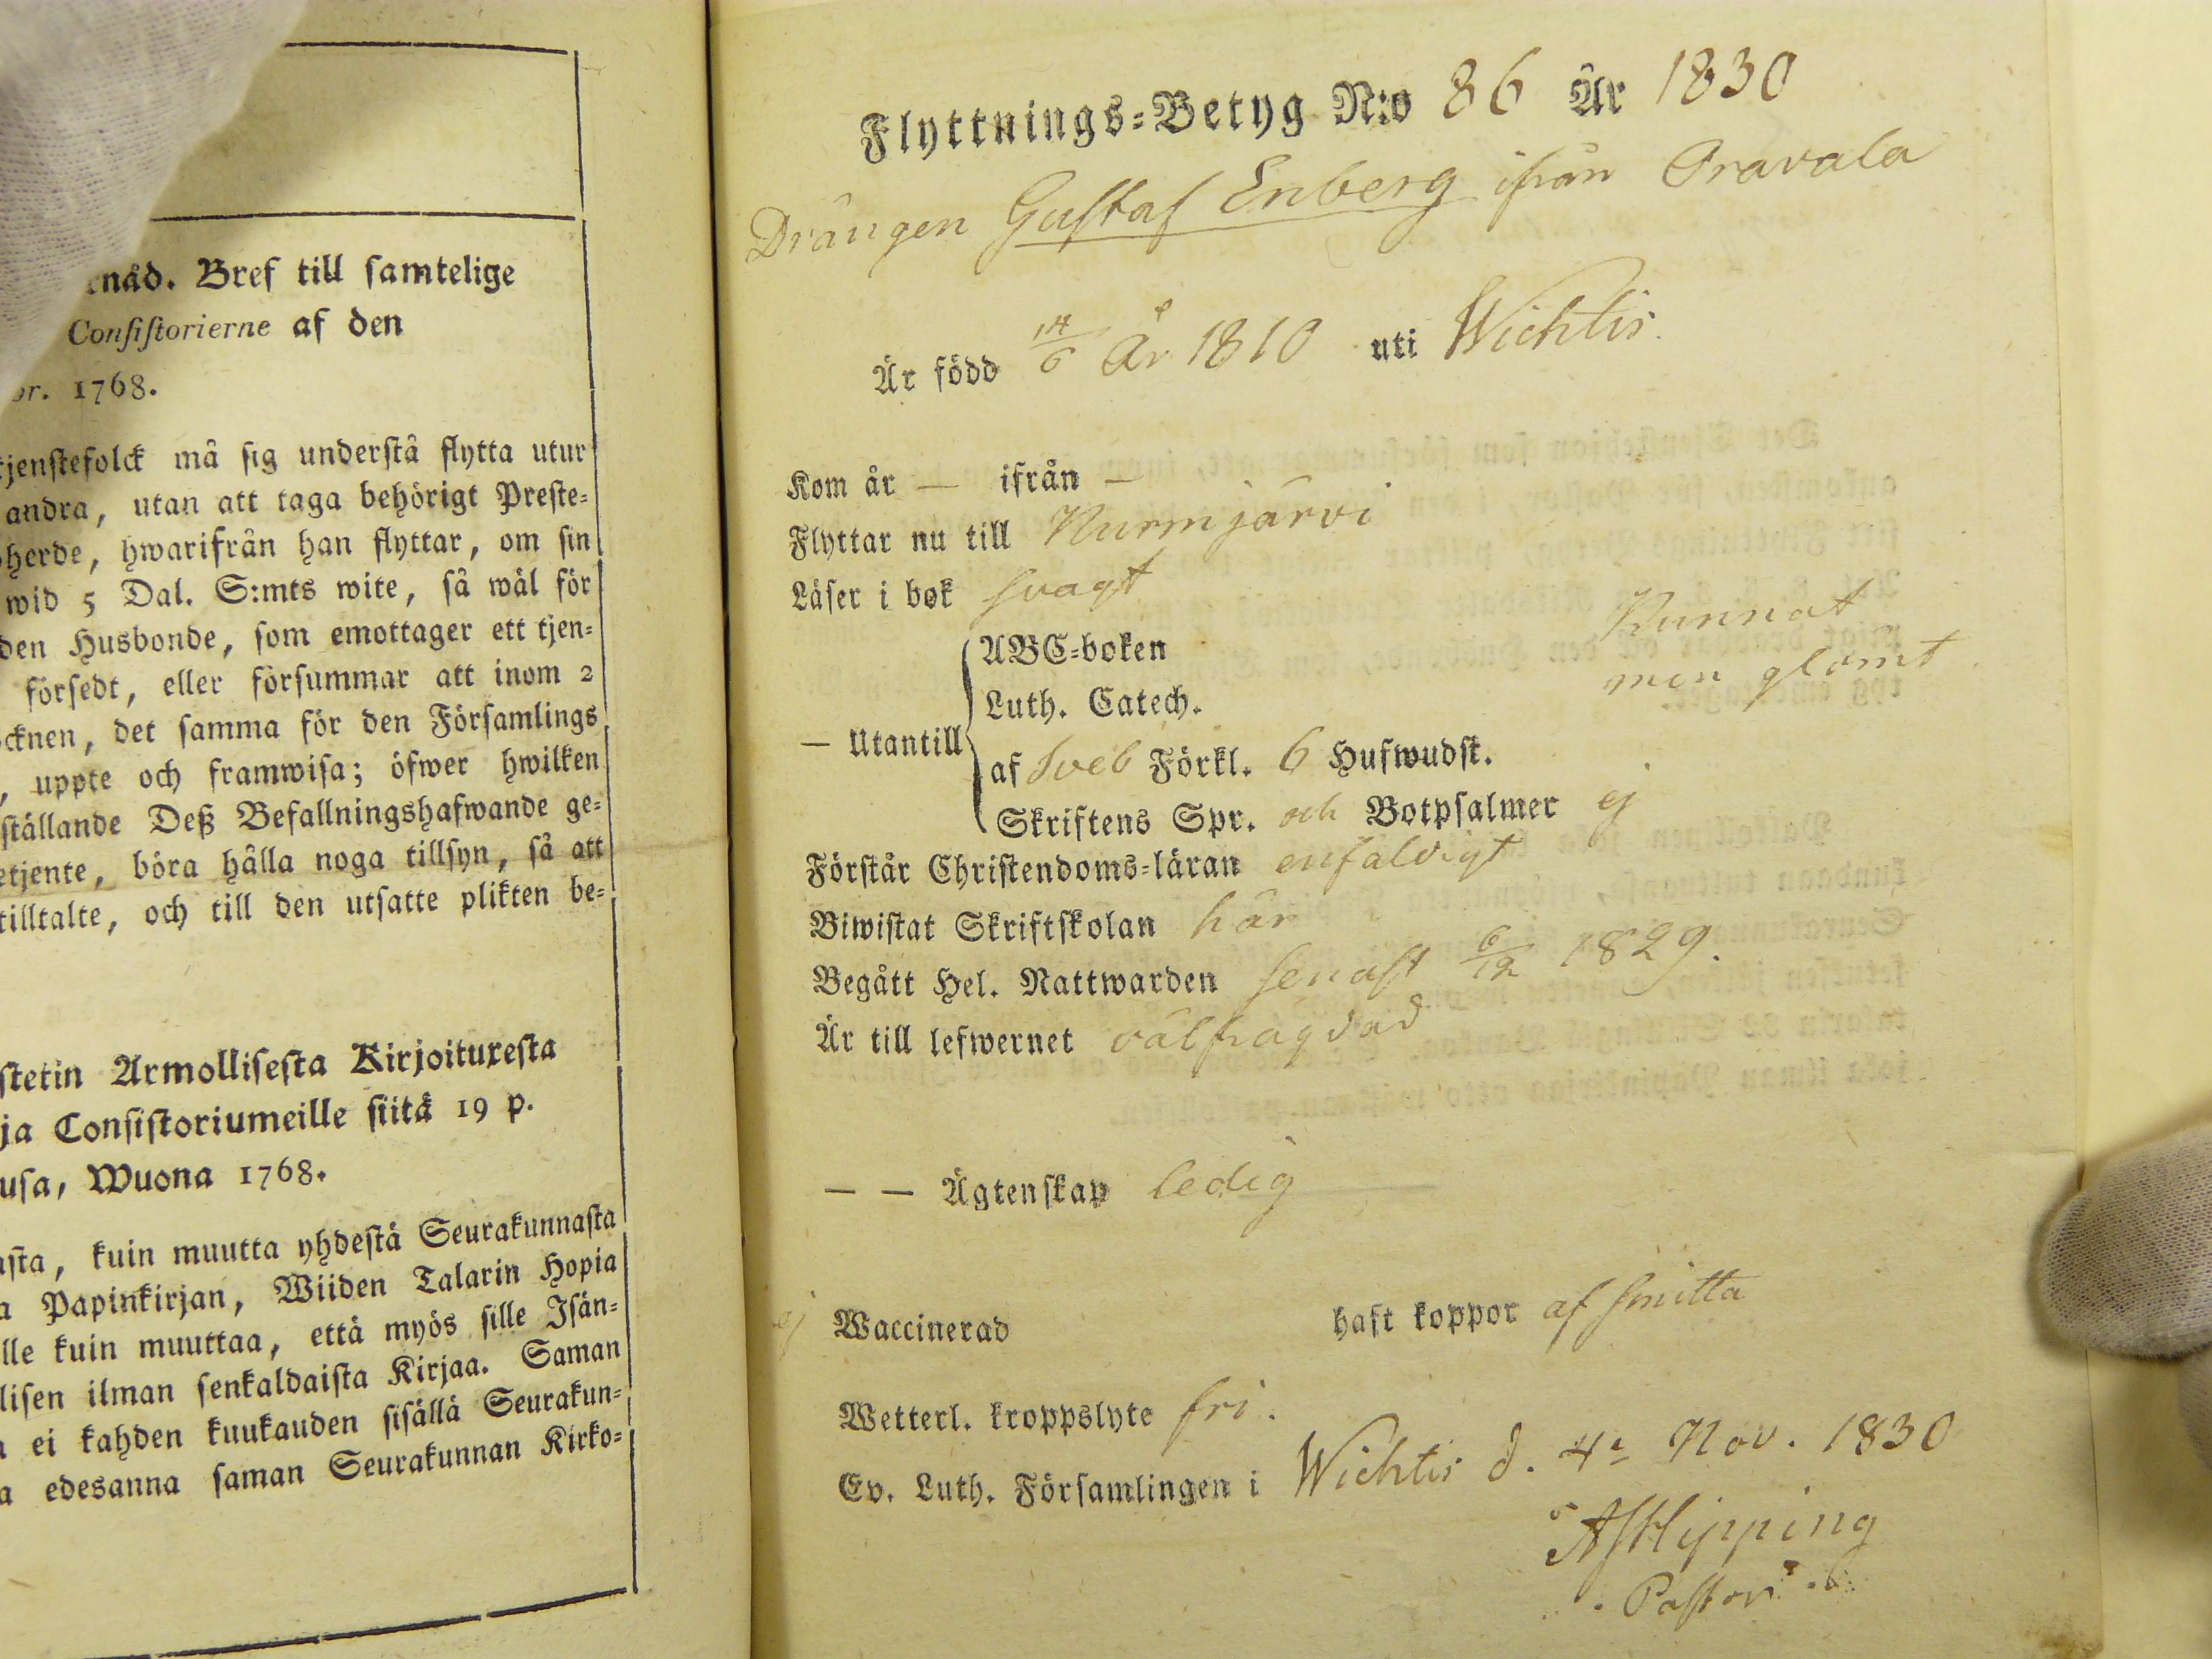 enåd. Bref till samtelige
Consistorierne af den
or. 1768.
tjenstefolck må sig understå flytta utur
andra, utan att taga behörigt Preste-
herde, hwarifrån han flyttar, om sin
wid 5 Dal. S:mts wite, så wäl för
den Husbonde, som emottager ett tjen-
försedt, eller försummar att inom 2
cknen, det samma för den Församlings
, uppte och framwisa; öfwer hwilken
ställande Deß Befallningshafwande ge-
etjente, böra hålla noga tillsyn, så att
tilltalte, och till den utsatte plikten be-
stetin Armollisesta Kirjoituxesta
ja Consistoriumeille siitä 19 p.
usa, Wuona 1768.
sta, kuin muutta yhdestä Seurakunnasta
a Papinkirjan, Wiiden Talarin Hopia
lle kuin muuttaa, että myös sille Isän-
lisen ilman senkaldaista Kirjaa. Saman
a ei kahden kuukauden sisällä Seurakun-
a edesanna saman Seurakunnan Kirko-
Flyttnings-Betyg N:o 86 År 1830
Drängen Gustaf Enberg ifrån Oravala
Är född 14/6 År 1810 uti Wichtis.
Kom år — ifrån —
Flyttar nu till Nurmjärvi
Läser i bok svagt
ABC-boken Kunnat
Luth. Catech. men glömt
— Utantill
af Sveb Förkl. 6 Hufwudst.
Skriftens Spr. och Botpsalmer ej
Förstår Christendoms-läran enfaldigt
Biwistat Skriftskolan här
Begått Hel. Nattwarden senast 6/12 1829.
Är till lefwernet välfrägdad
— — Ägtenskap ledig
ej Waccinerad haft koppor af smitta
Wetterl. kroppslyte fri.
Ev. Luth. Församlingen i Wichtis d. 4 Nov. 1830
Hipping
Pastor